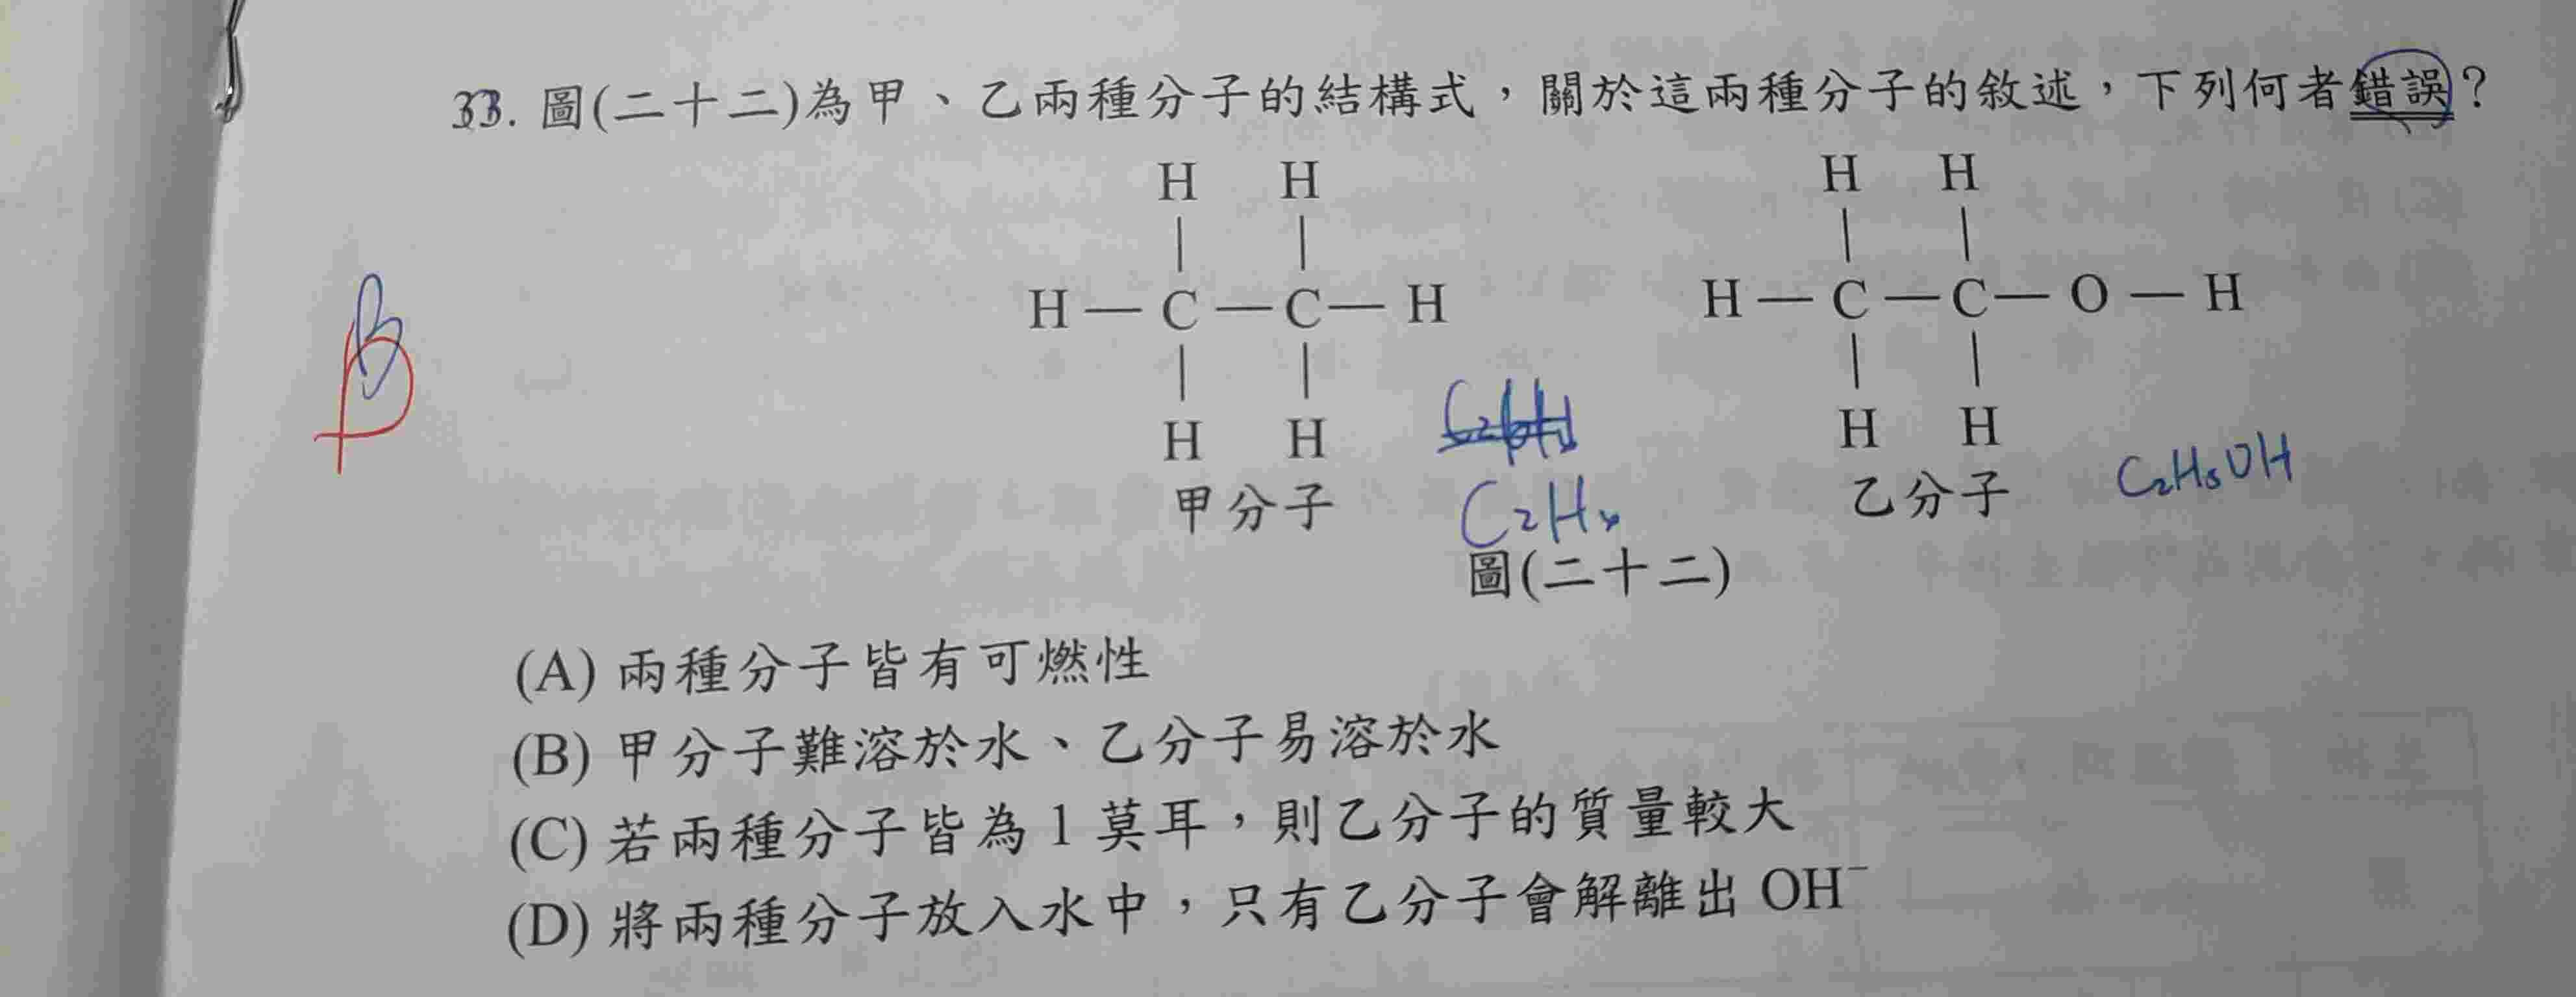 33. 圖(二十二)為甲、乙兩種分子的結構式，關於這兩種分子的敘述，下列何者錯誤？
H H
H — C — C — H
H H
甲分子
C₂H₄
H H
H — C — C — O — H
H H
乙分子
C₂H₅OH
圖(二十二)
B
D
(A) 兩種分子皆有可燃性
(B) 甲分子難溶於水、乙分子易溶於水
(C) 若兩種分子皆為 1 莫耳，則乙分子的質量較大
(D) 將兩種分子放入水中，只有乙分子會解離出 OH⁻